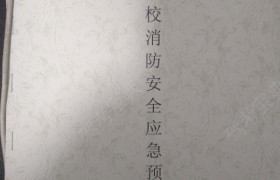 校消防安全应急预